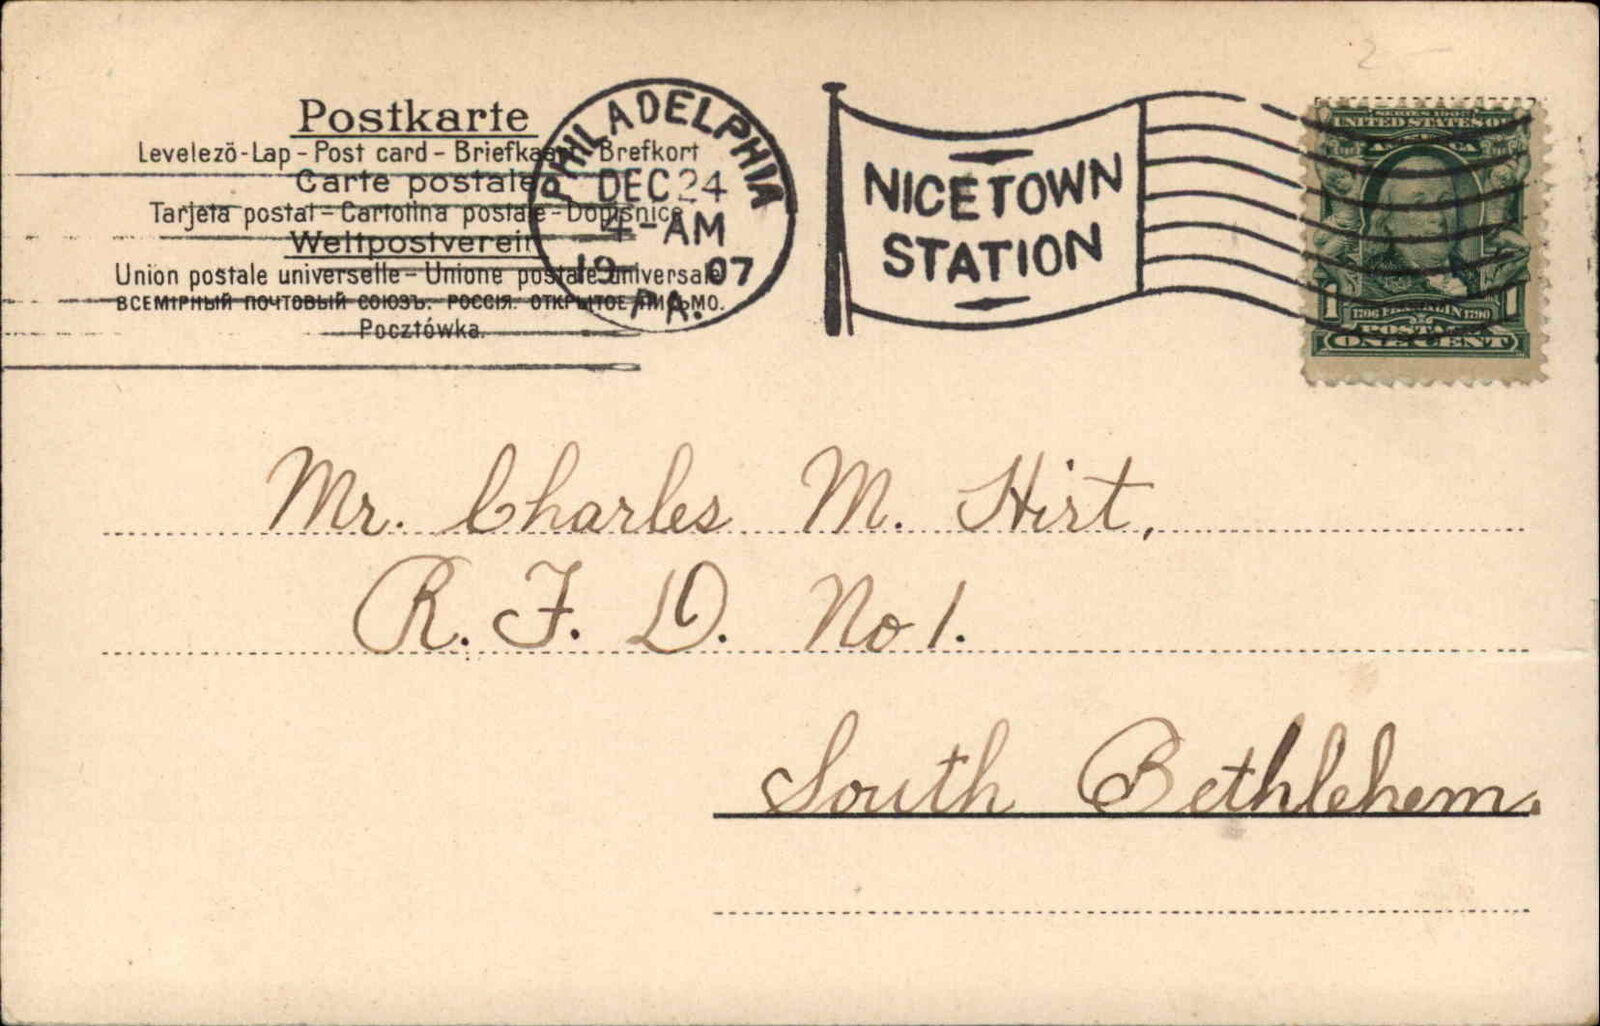 Postkarte
Levelezö-Lap - Post card - Briefkaart - Brefkort
Carte postale
Tarjeta postal - Cartolina postale - Dopisnice
Weltpostverein
Union postale universelle - Unione postale universale
ВСЕМІРНЫЙ ПОЧТОВЫЙ СОЮЗЪ. РОССІЯ. ОТКРЫТОЕ ПИСЬМО.
Pocztówka.
PHILADELPHIA
DEC 24
4-AM
19 07
PA.
NICETOWN
STATION
SERIES 1902
UNITED STATES OF
AMERICA
1 1706 FRANKLIN 1790 1
POSTAGE
ONE CENT
Mr. Charles M. Hirt,
R. F. D. No 1.
South Bethlehem.